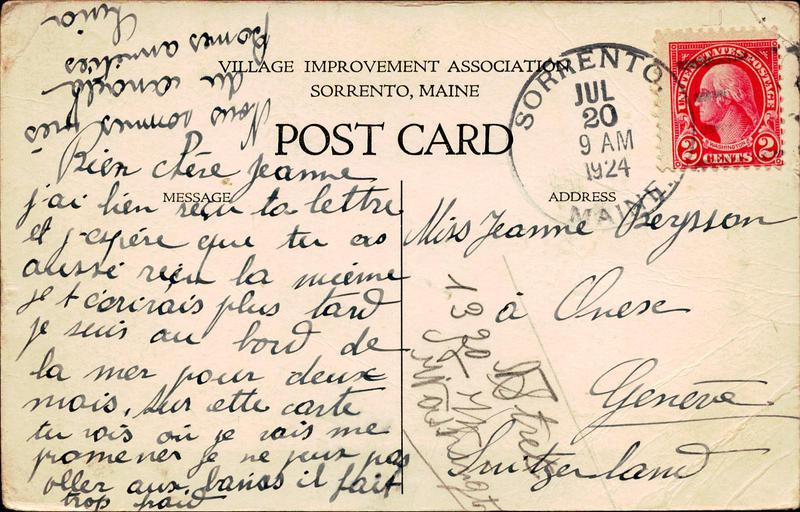 VILLAGE IMPROVEMENT ASSOCIATION
SORRENTO, MAINE
POST CARD
SORRENTO.
JUL
20
9 AM
1924
MAINE
UNITED STATES POSTAGE
WASHINGTON
2 CENTS 2
MESSAGE
Bien chère Jeanne
j'ai bien reçu ta lettre
et j'espère que tu as
aussi reçu la mienne
je t'écrirais plus tard
je suis au bord de
la mer pour deux
mois, sur cette carte
tu vois où je vais me
promener je ne peux pas
aller aux bains il fait
trop froid
Nous sommes très
au
Bonnes amitiés
ADDRESS
Miss Jeanne Reysson
à Onex
Genève
Switzerland
Street